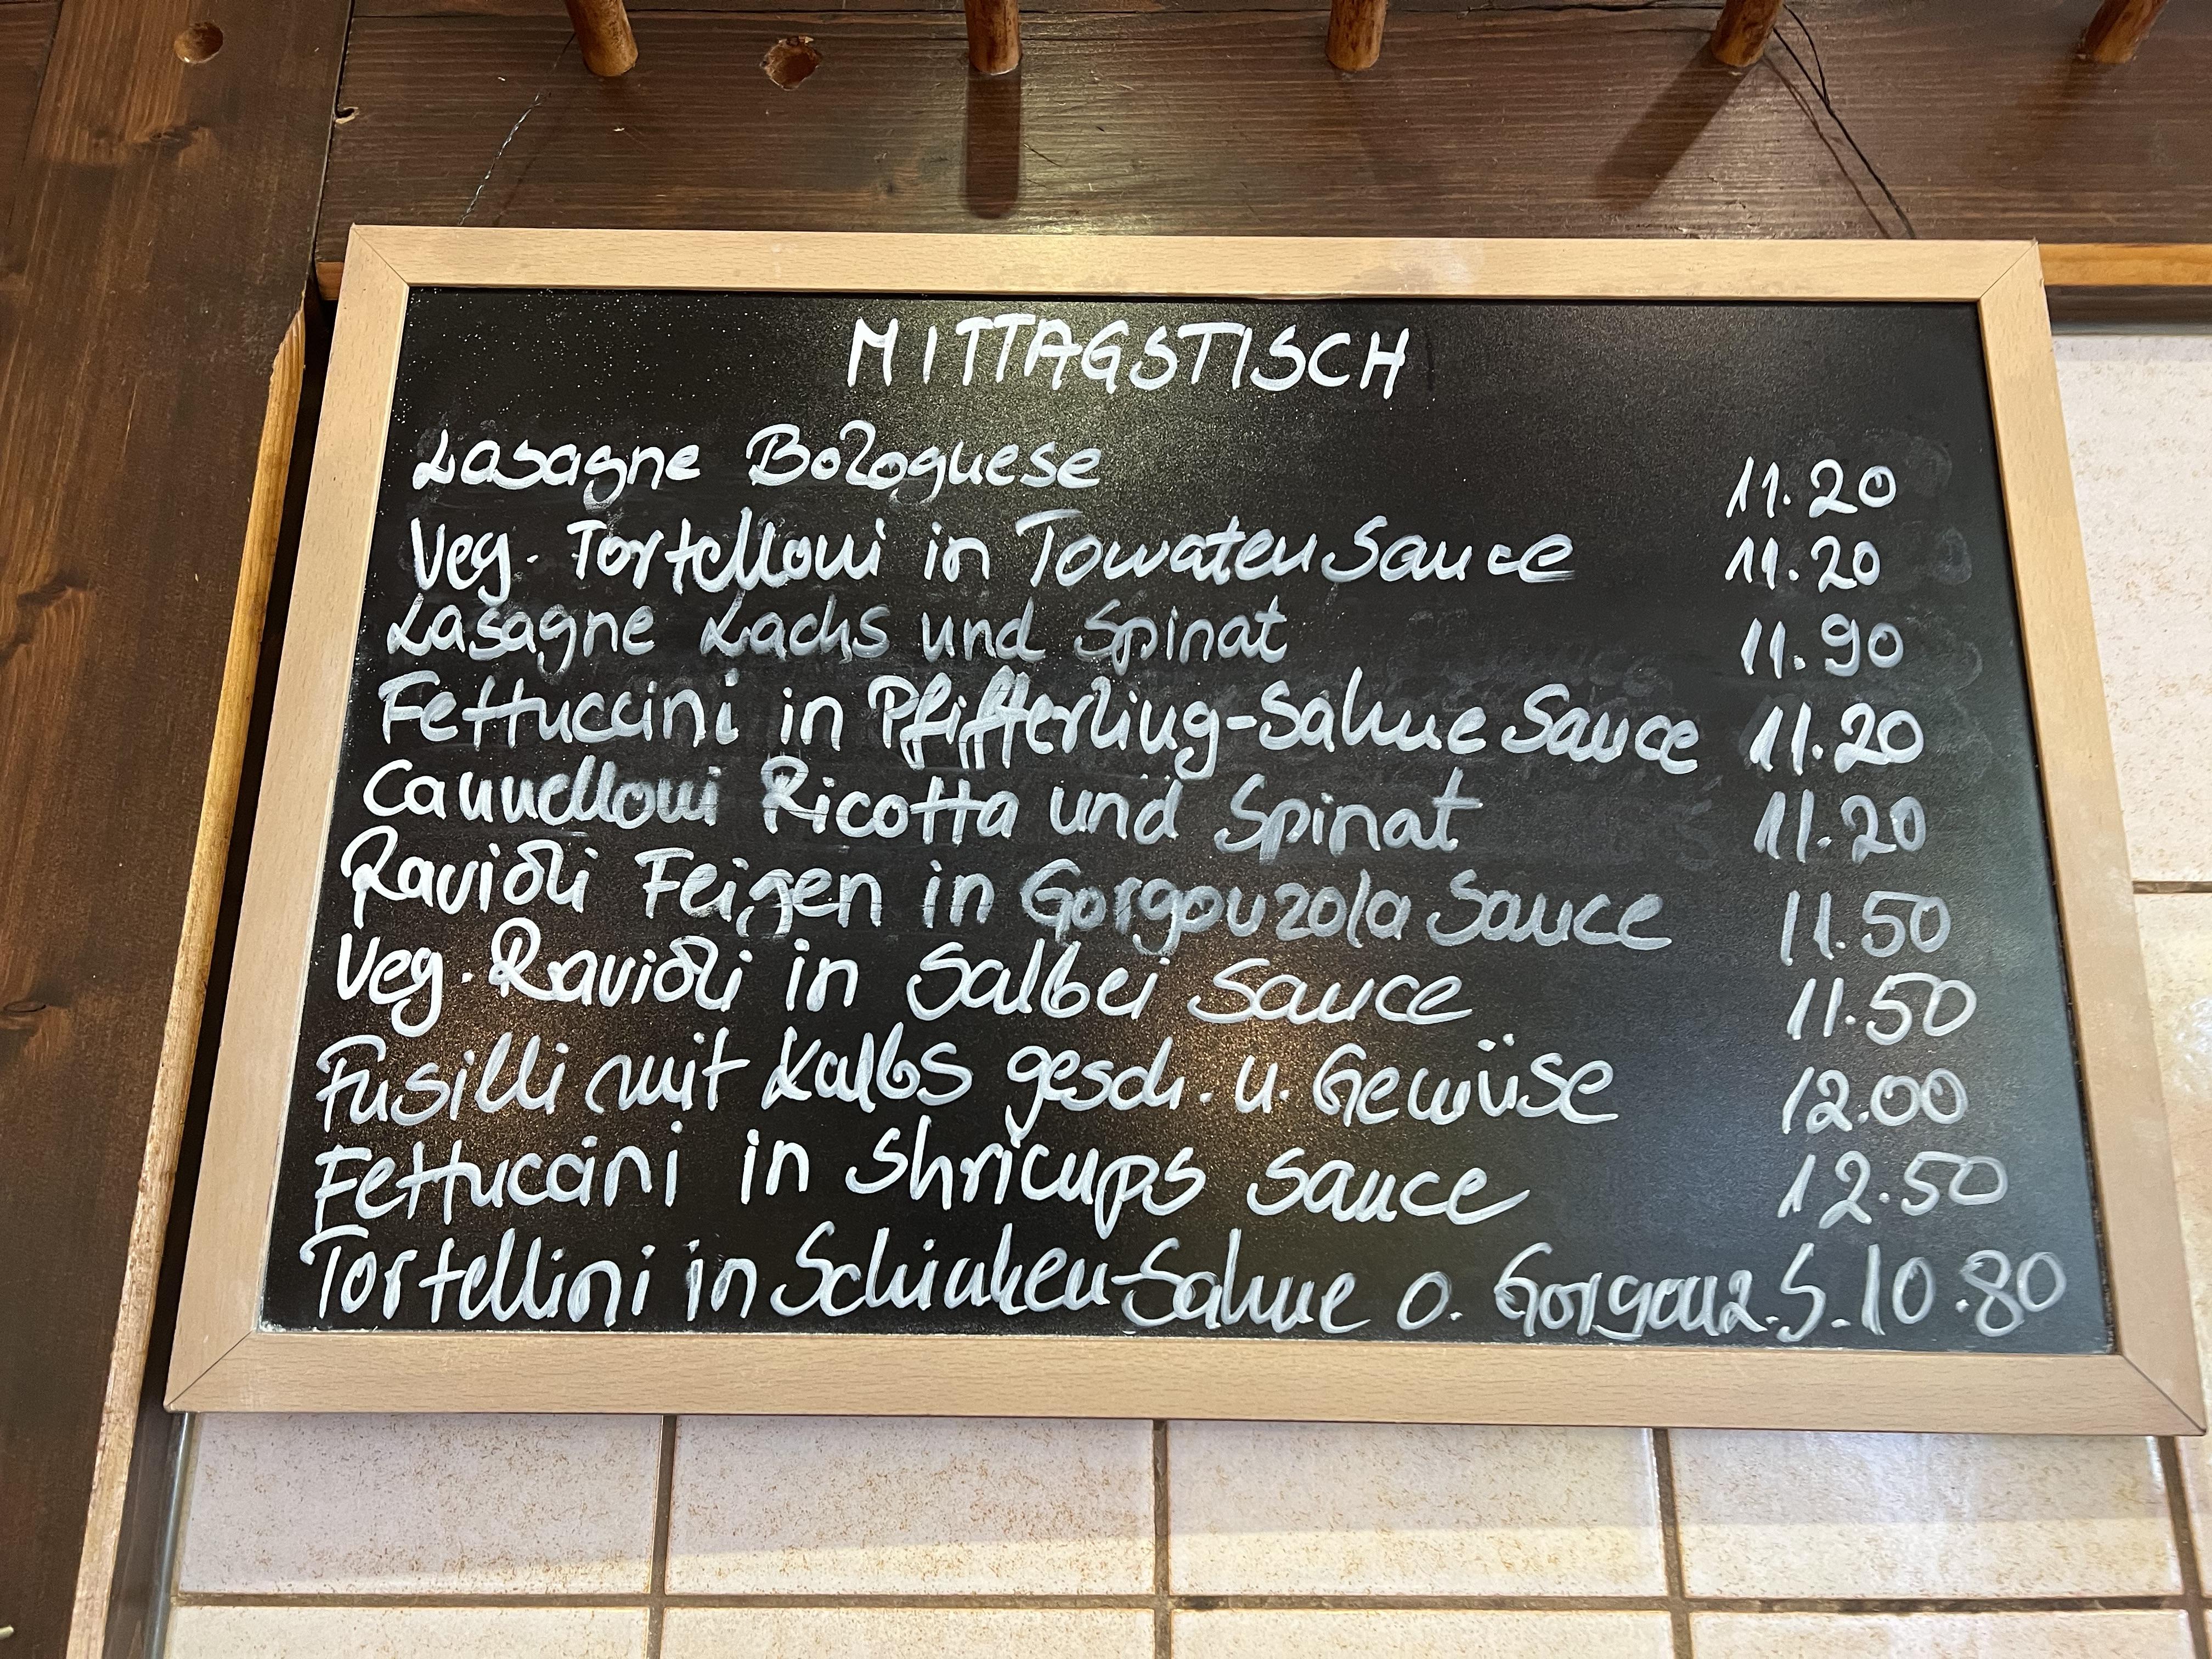 MITTAGSTISCH
Lasagne Bolognese 11.20
Veg. Tortelloni in Tomaten Sauce 11.20
Lasagne Lachs und Spinat 11.90
Fettuccini in Pfifferling-Sahne Sauce 11.20
Cannelloni Ricotta und Spinat 11.20
Ravioli Feigen in Gorgonzola Sauce 11.50
Veg. Ravioli in Salbei Sauce 11.50
Fusilli mit Kalbs gesch. u. Gemüse 12.00
Fettuccini in Shrimps Sauce 12.50
Tortellini in Schinken-Sahne o. Gorgonz. S. 10.80